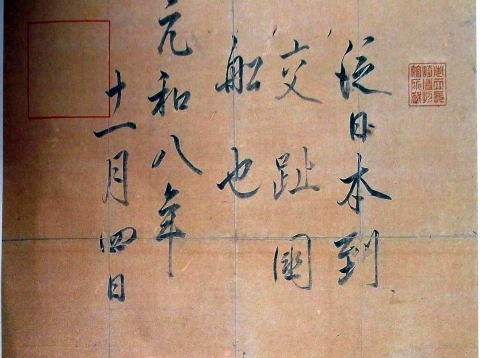 従日本到
交趾國
舩也
元和八年
十一月四日